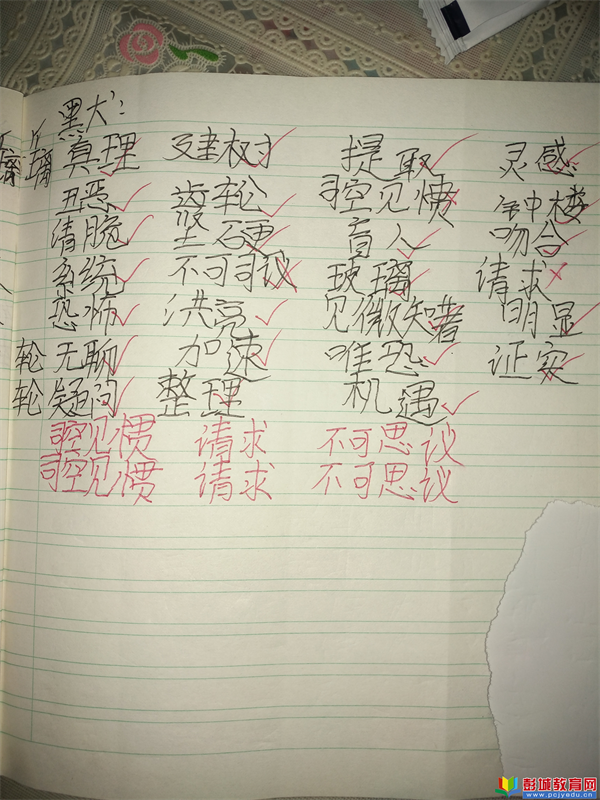 默:
璃 璃 真理 建树 提取 灵感
丑恶 齿轮 司空见惯 钟楼
清脆 坚硬 盲人 吻合
系统 不可司议 玻璃 请求
恐怖 洪亮 见微知著 明显
轮 无聊 加速 唯恐 证实
轮 疑问 整理 机遇
司空见惯 请求 不可思议
司空见惯 请求 不可思议
彭城教育网
www.pcjyedu.cn